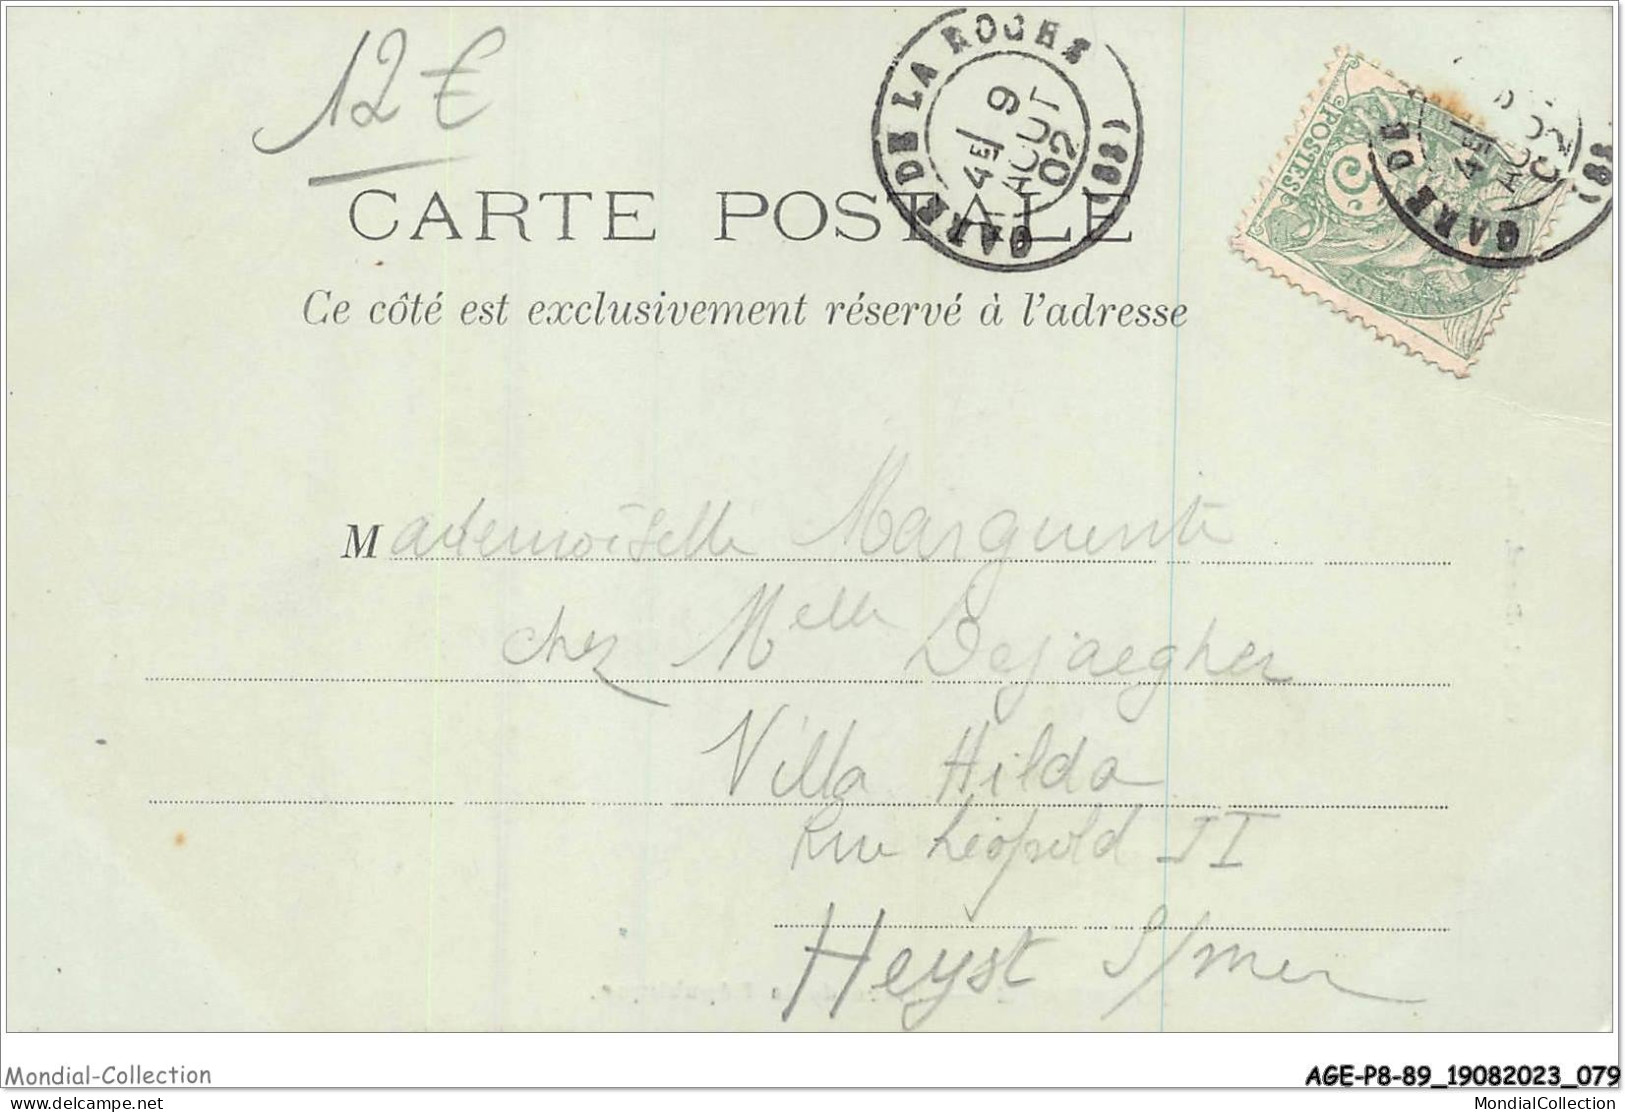 12 €
GARE DE LA ROCHE (89)
4E 9 AOUT 02
POSTES 5
GARE DE (89)
4E
CARTE POSTALE
Ce côté est exclusivement réservé à l'adresse
Mademoiselle Marguerite
chez Melle Dejaegher
Villa Hilda
Rue Léopold II
Heyst s/mer
Mondial-Collection
AGE-P8-89_19082023_079
delcampe.net
MondialCollection